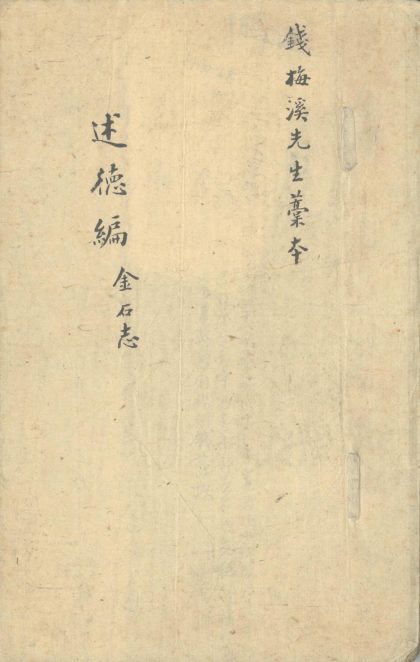 錢梅溪先生藁本
述德編
金石志